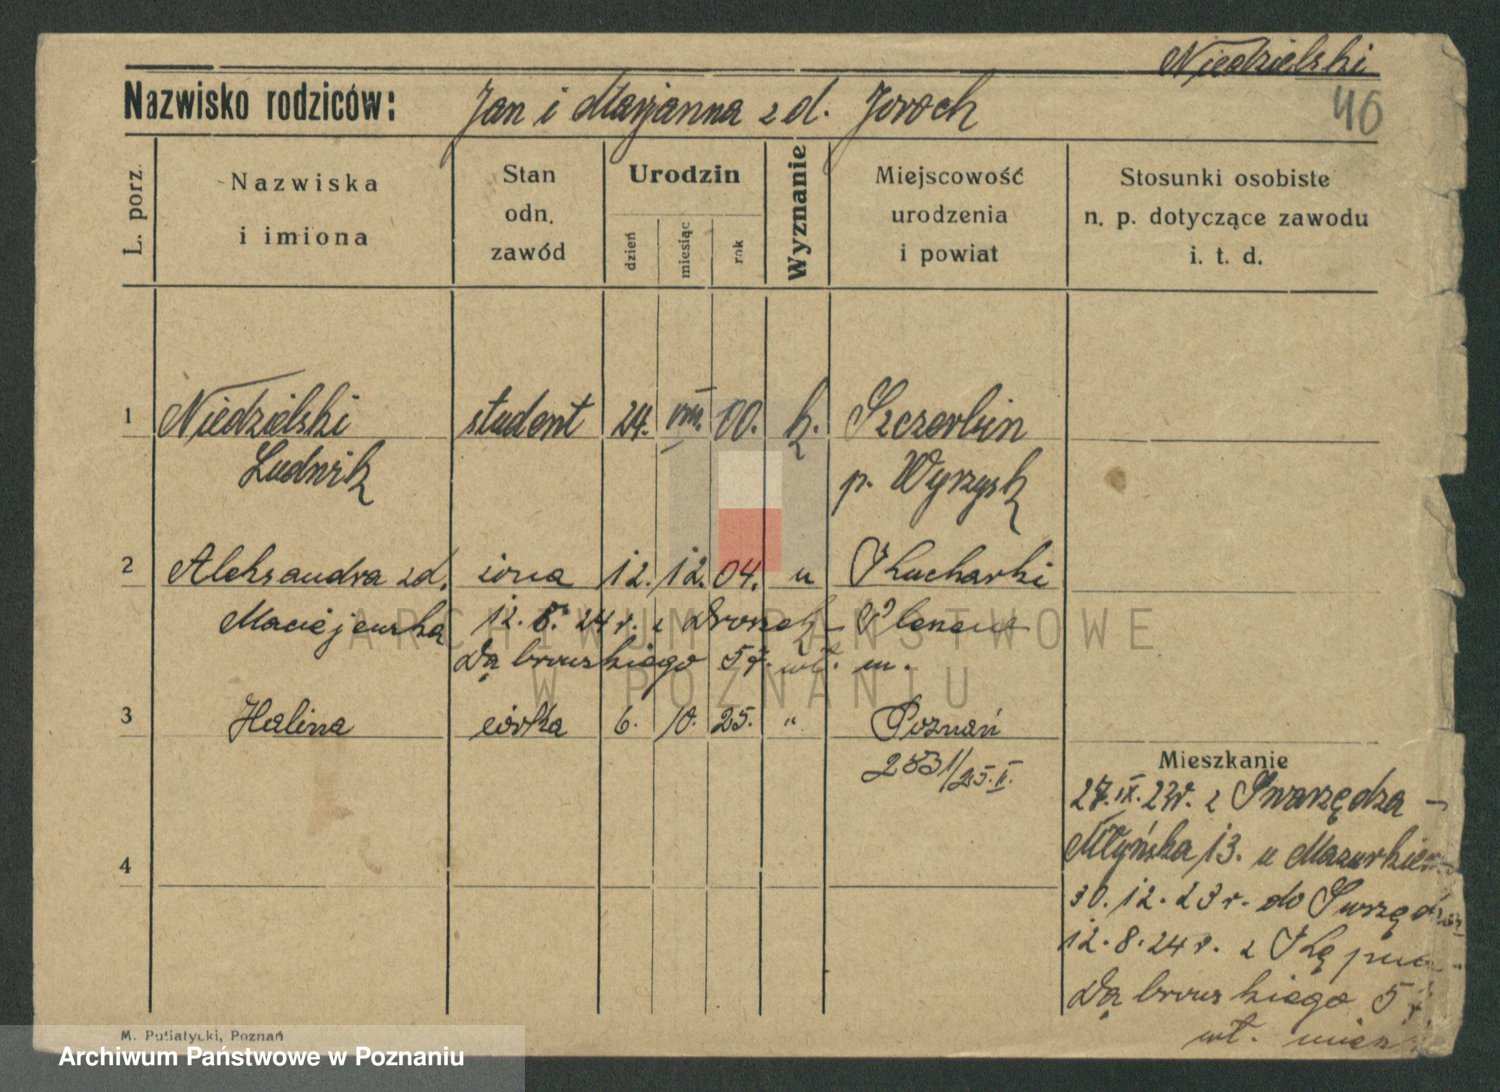 Niedzielski
Nazwisko rodziców: Jan i Marjanna z d. Joroch
46
L. porz.
Nazwiska
i imiona
Stan
odn.
zawód
Urodzin
dzień
miesiąc
rok
Wyznanie
Miejscowość
urodzenia
i powiat
Stosunki osobiste
n. p. dotyczące zawodu
i. t. d.
1 Niedzielski student 24. VIII. 00. k. Szczerbin
Ludwik p. Wyrzysk
2 Aleksandra zd. żona 12. 12. 04. u Kucharki
Maciejewska 12. 8. 24 r. z
Dąbrowskiego wł. m.
3 Halina córka 6. 10. 25. " Poznań
2831/25. II.
4
Mieszkanie
27. IX. 23r. z Swarzędza –
Młyńska 13. u
30. 12. 23 r. do
12. 8. 24 r. z
Dąbrowskiego
wł.
ARCHIWUM PAŃSTWOWE
W POZNANIU
M. Putiatycki, Poznań
Archiwum Państwowe w Poznaniu